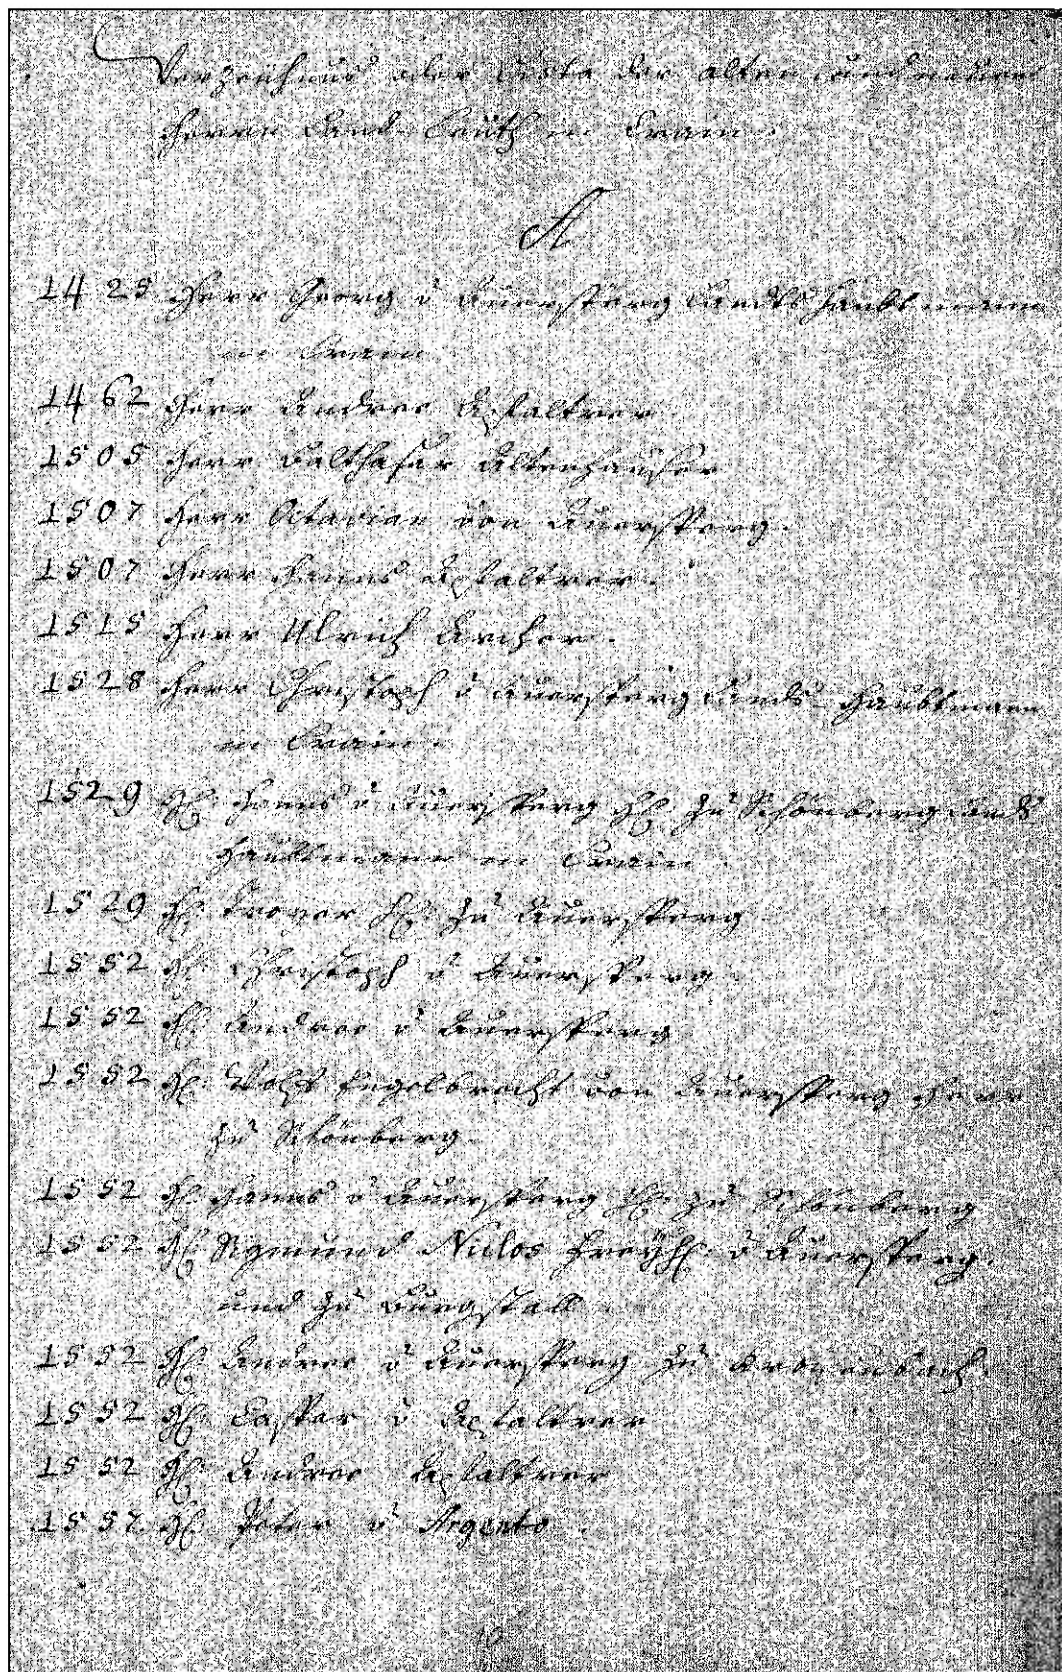 Verzeichnus oder Lista der alten und neuen
Herrn Land Leüth in Crain.
A
1425 Herr Georg v Auersperg Landts Haubtmann
in Crain
1462 Herr Andree Apfaltrer
1505 Herr Balthasar Altenhauser
1507 Herr Octavian von Auersperg.
1507 Herr Hanns Apfaltrer.
1515 Herr Ulrich Archer.
1528 Herr Christoph v Auersperg Lands-Haubtmann
in Crain.
1529 H: Hanns v Auersperg H: zu Schönberg Lands
Haubtmann in Crain
1529 H: Troyer H: zu Auersperg
1552 H: Christoph v Auersperg
1552 H: Andree v Auersperg
1552 H: Wolff Engelbrecht von Auersperg Herr
zu Schönberg
1552 H: Hanns v Auersperg H: zu Schönberg
1552 H: Sigmund Niclos Freyh: v Auersperg.
und zu Burgstall
1552 H: Andree v Auersperg zu
1552 H: Casper v Apfaltrer
1552 H: Andree Apfaltrer
1557 H: Peter v Argento.